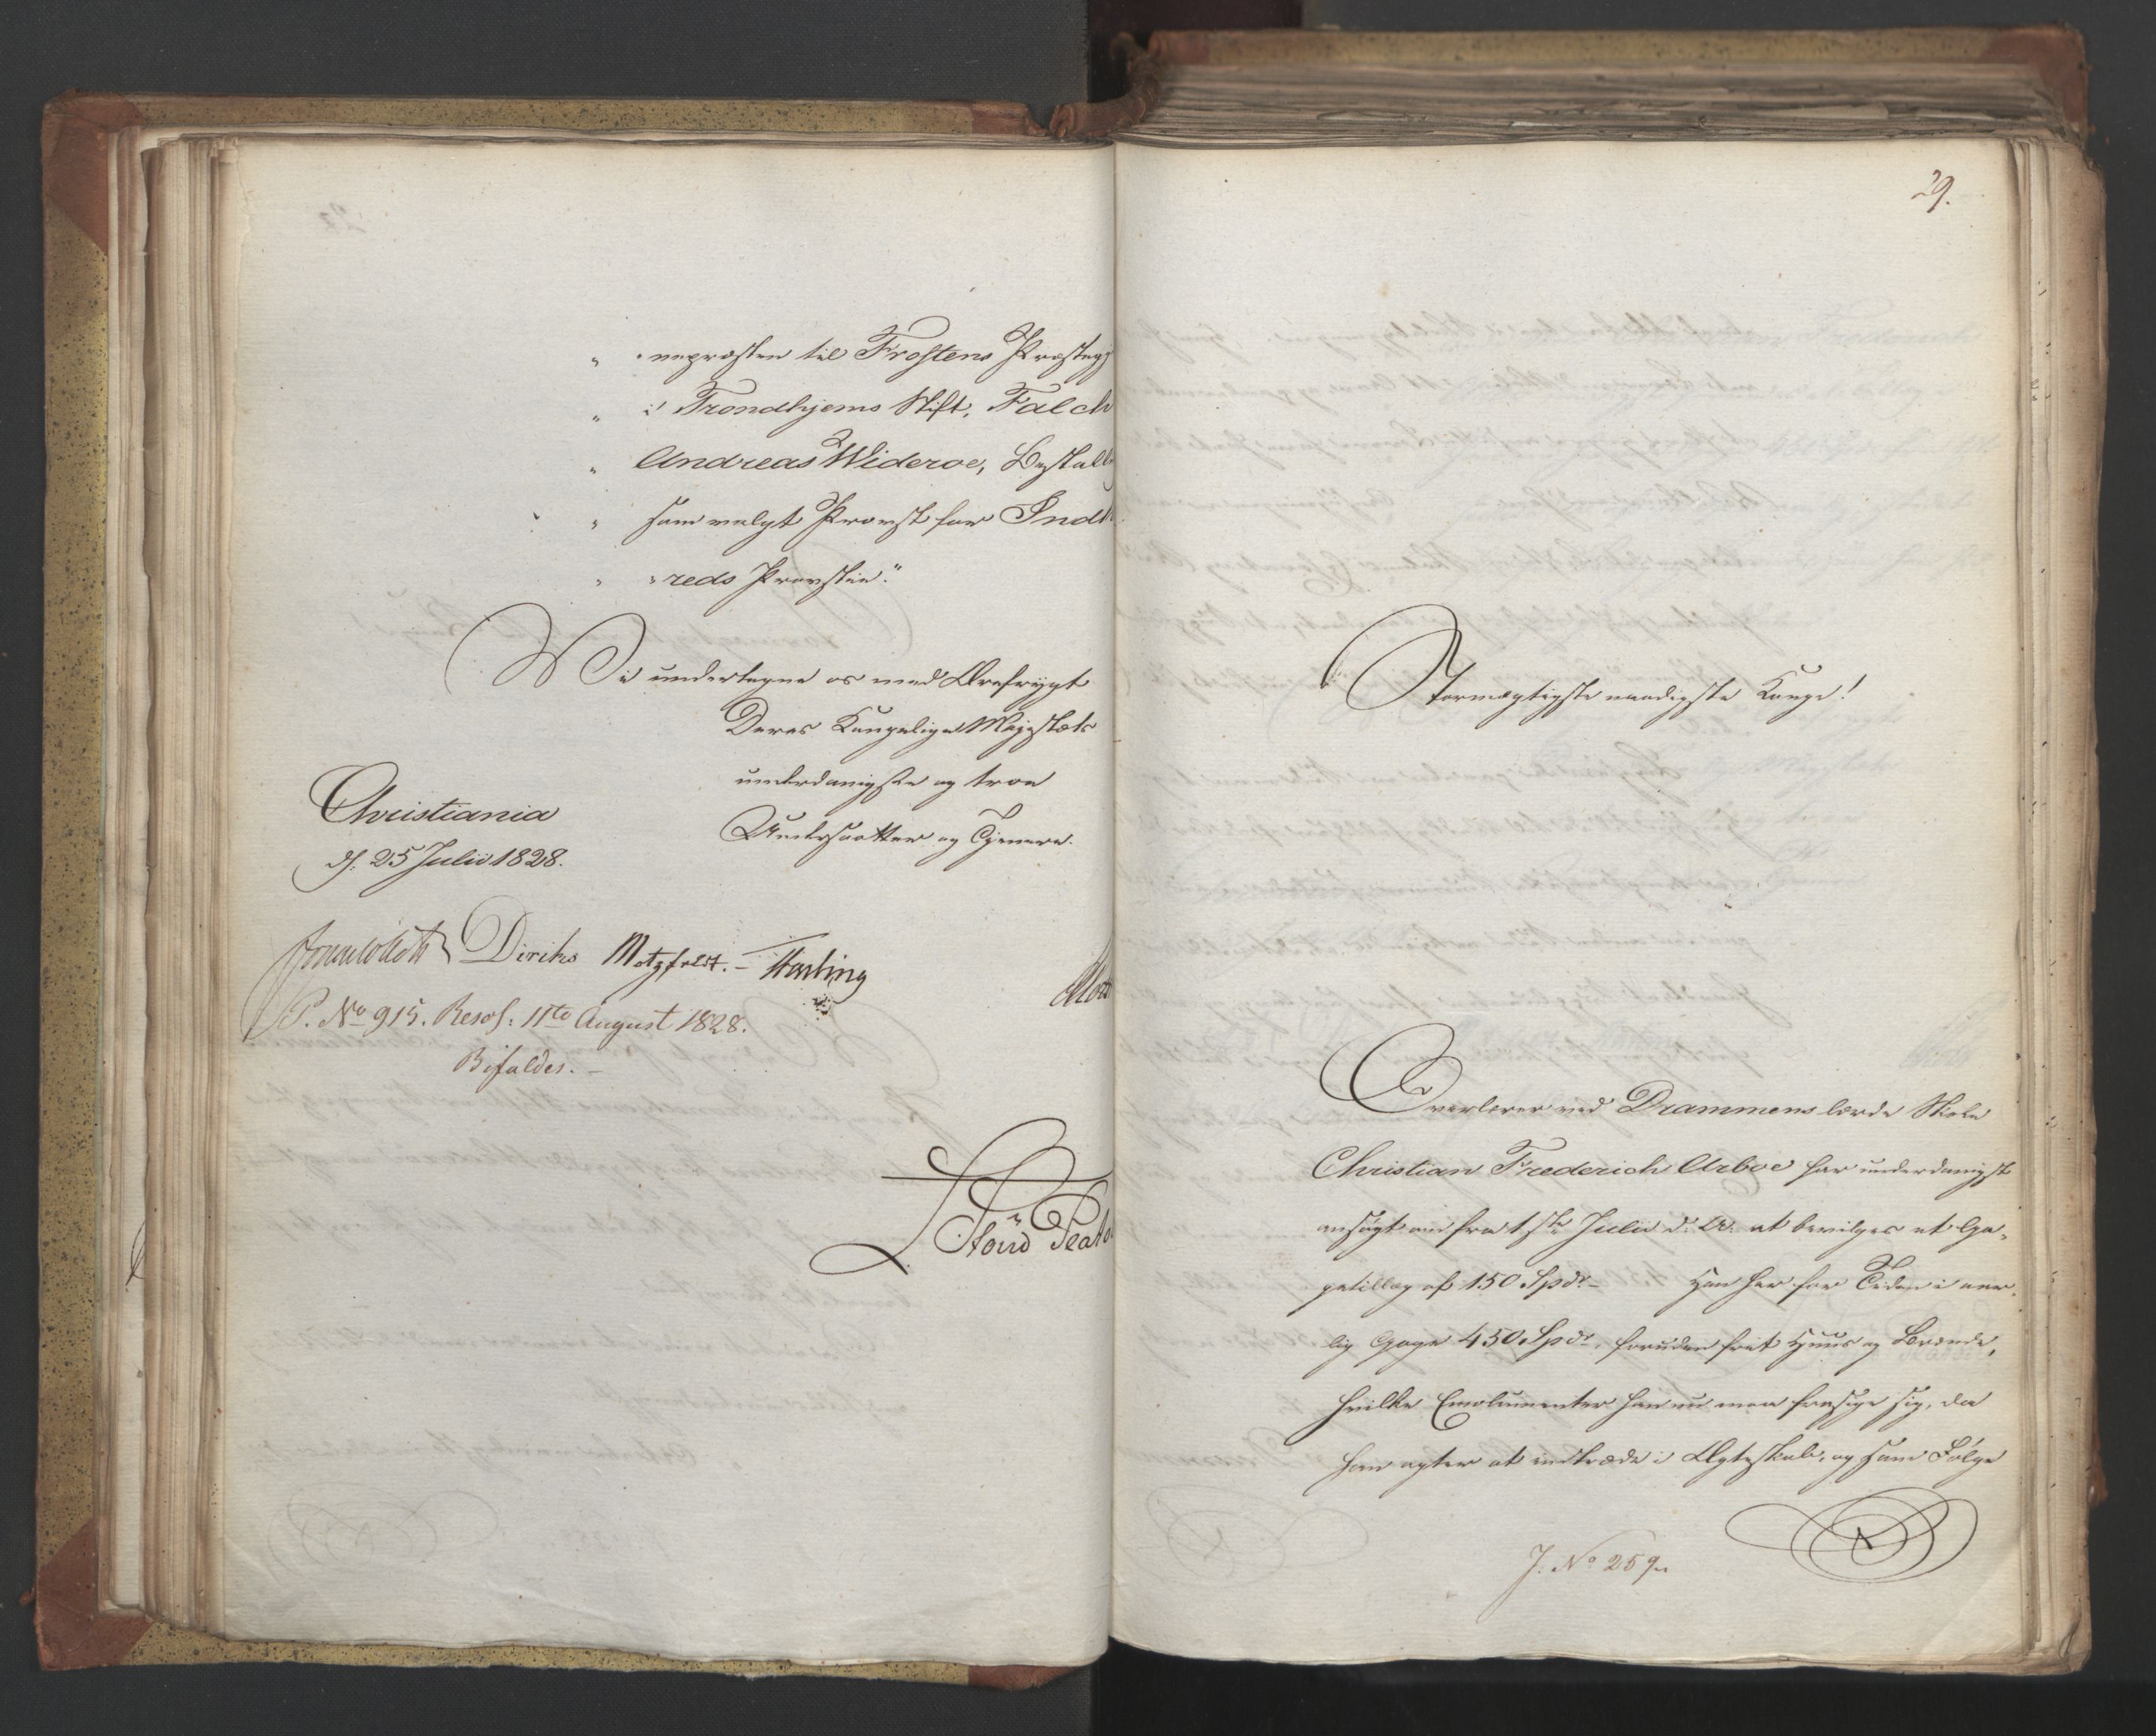 „ „nepræsten til Frostens Præstegj
„ i Trondhjems Stift, Falch
„ Andreas Widerøe, Bestall
„ som valgt Provst for Ind
„ „reds Provstie."
Vi undertegne os med Ærefrygt
Deres Kongelige Majestæts
underdanigste og troe
Undersaatter og Tjenere.
Christiania
d. 25 Julii 1828.
Diriks Motzfeldt. – Hasting
P. No 915. Resol: 11te August 1828.
Bifaldes. –
29.
Stormægtigste naadigste Konge!
Overlærer ved Drammens lærde Skole
Christian Frederich Arboe har underdanigst
ansøgt om fra 1ste Julii d. A. at bevilges et Ga-
getillæg af 150 Spdr – Han har for Tiden i aar-
lig Gage 450 Spdr, foruden frit Huus og Brænde,
hvilke Emolumenter han nu maa frasige sig, da
han agter at indtræde i Ægteskab, og som Følge
J. No 259